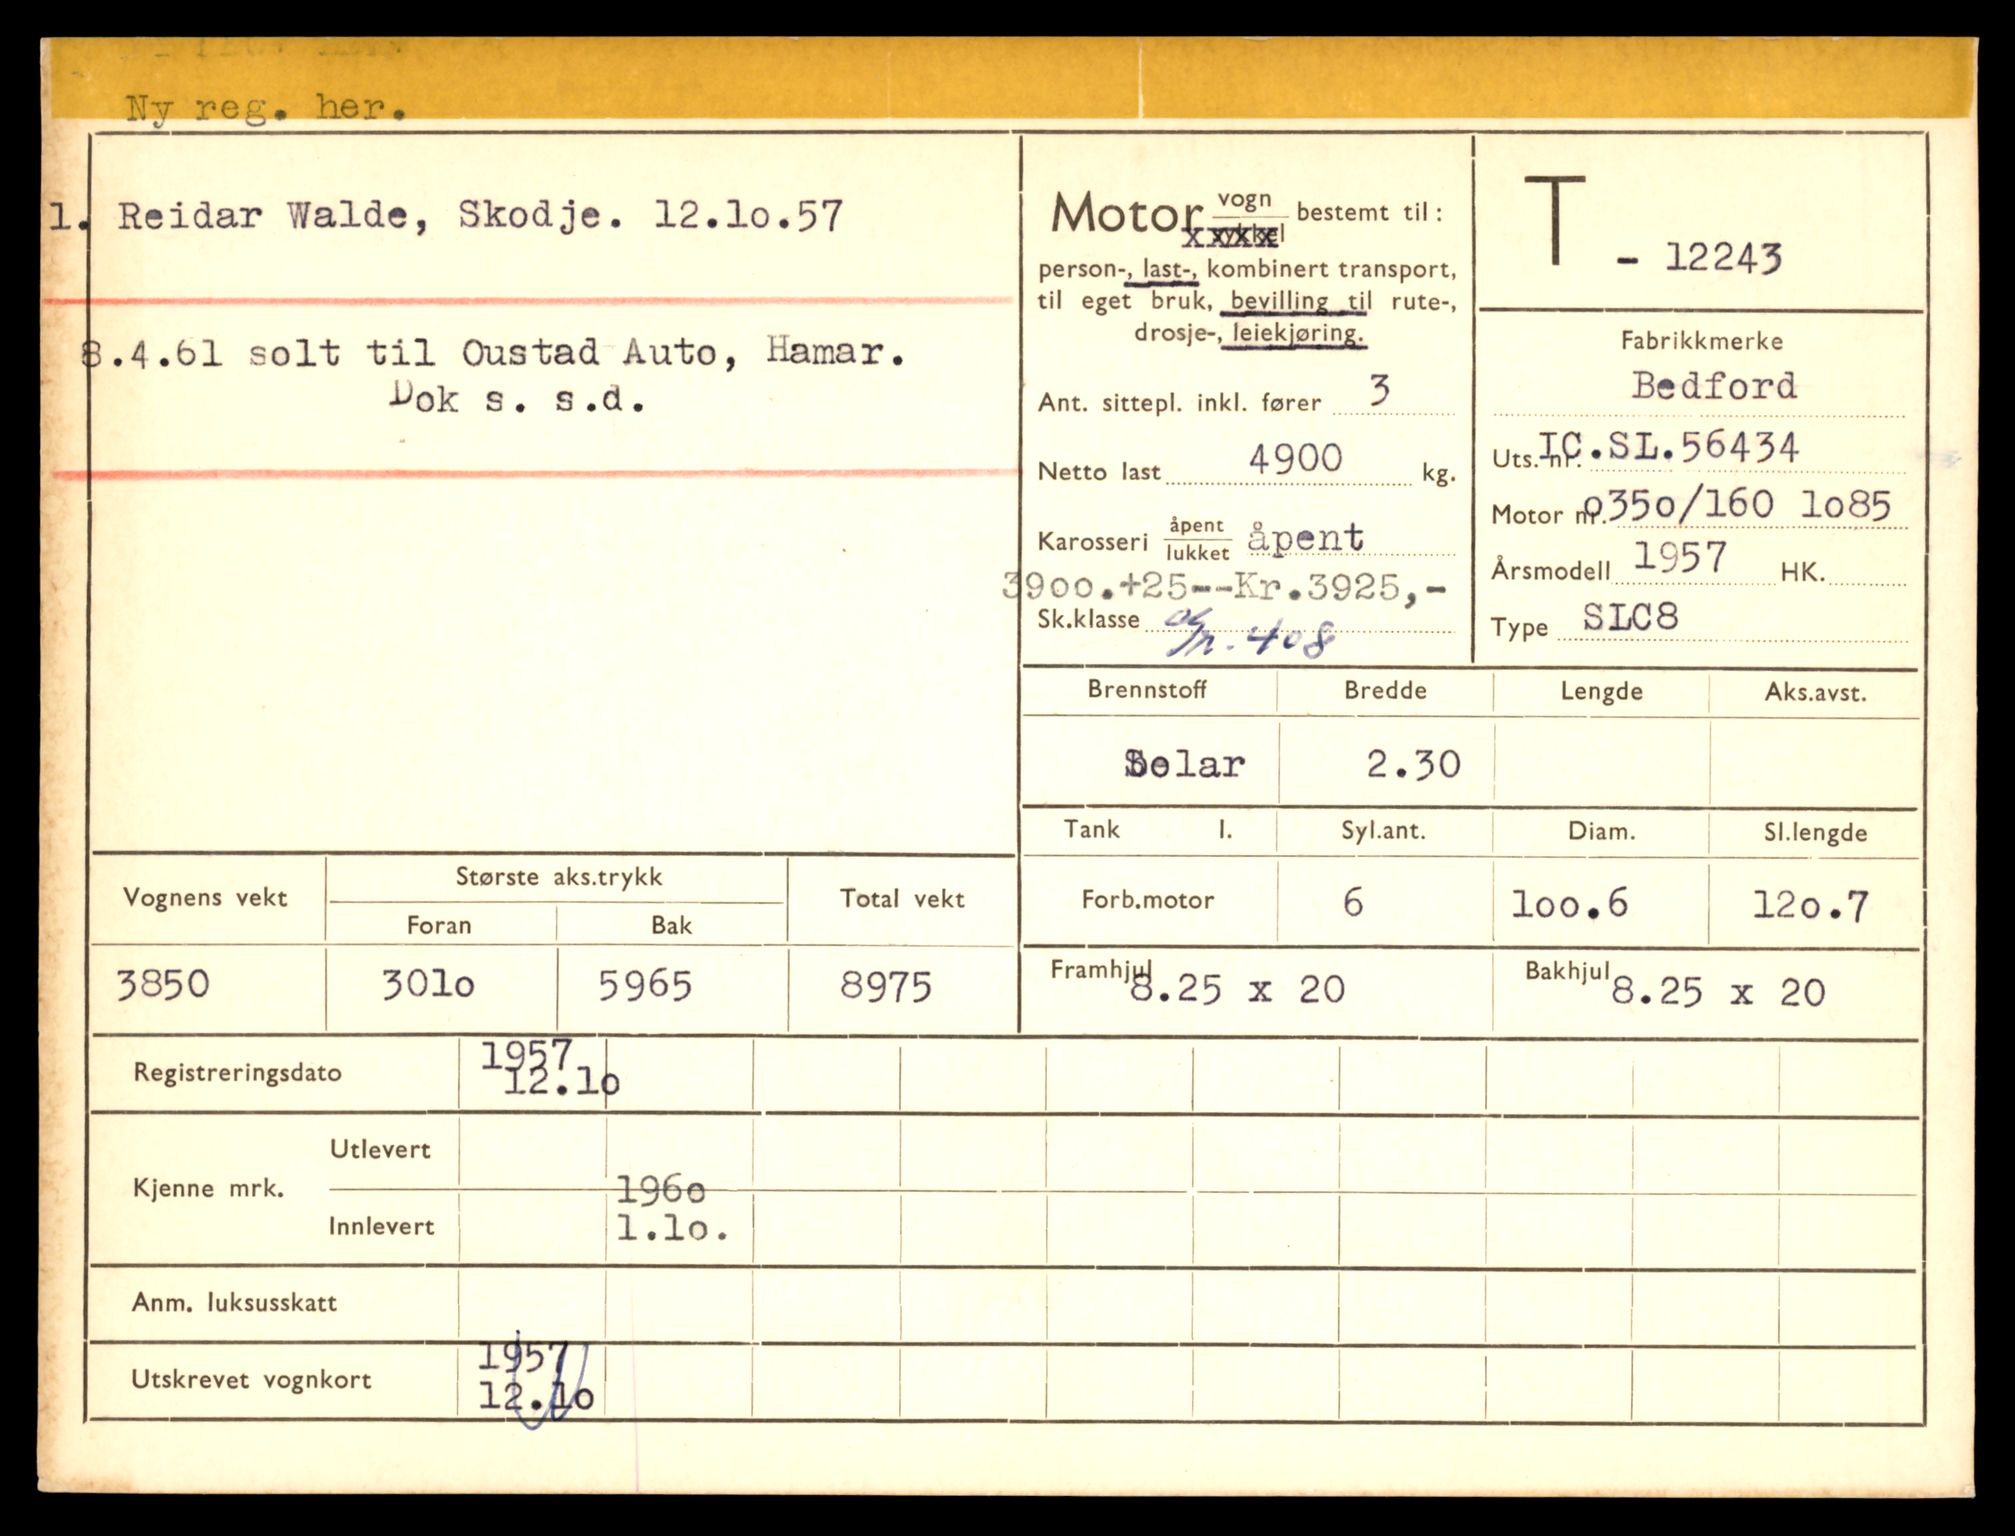 Ny reg. her.
1. Reidar Walde, Skodje. 12.1o.57
8.4.61 solt til Oustad Auto, Hamar.
Dok s. s.d.
Motor vogn bestemt til:
xxxx
person-, last-, kombinert transport,
til eget bruk, bevilling til rute-,
drosje-, leiekjøring.
Ant. sittepl. inkl. fører 3
Netto last 4900 kg.
Karosseri åpent lukket åpent
3900.+25--Kr.3925,-
Sk.klasse 408
T - 12243
Fabrikkmerke
Bedford
Uts. nr. IC.SL.56434
Motor nr. o35o/160 1o85
Årsmodell 1957 HK.
Type SLC8
Brennstoff Bredde Lengde Aks.avst.
Solar 2.30
Tank l. Syl.ant. Diam. Sl.lengde
Forb.motor 6 1oo.6 12o.7
Framhjul 8.25 x 20 Bakhjul 8.25 x 20
Vognens vekt Største aks.trykk Total vekt
Foran Bak
3850 301o 5965 8975
Registreringsdato 1957
12.1o
Utlevert
Kjenne mrk. 196o
Innlevert 1.1o.
Anm. luksusskatt
Utskrevet vognkort 1957
12.1o